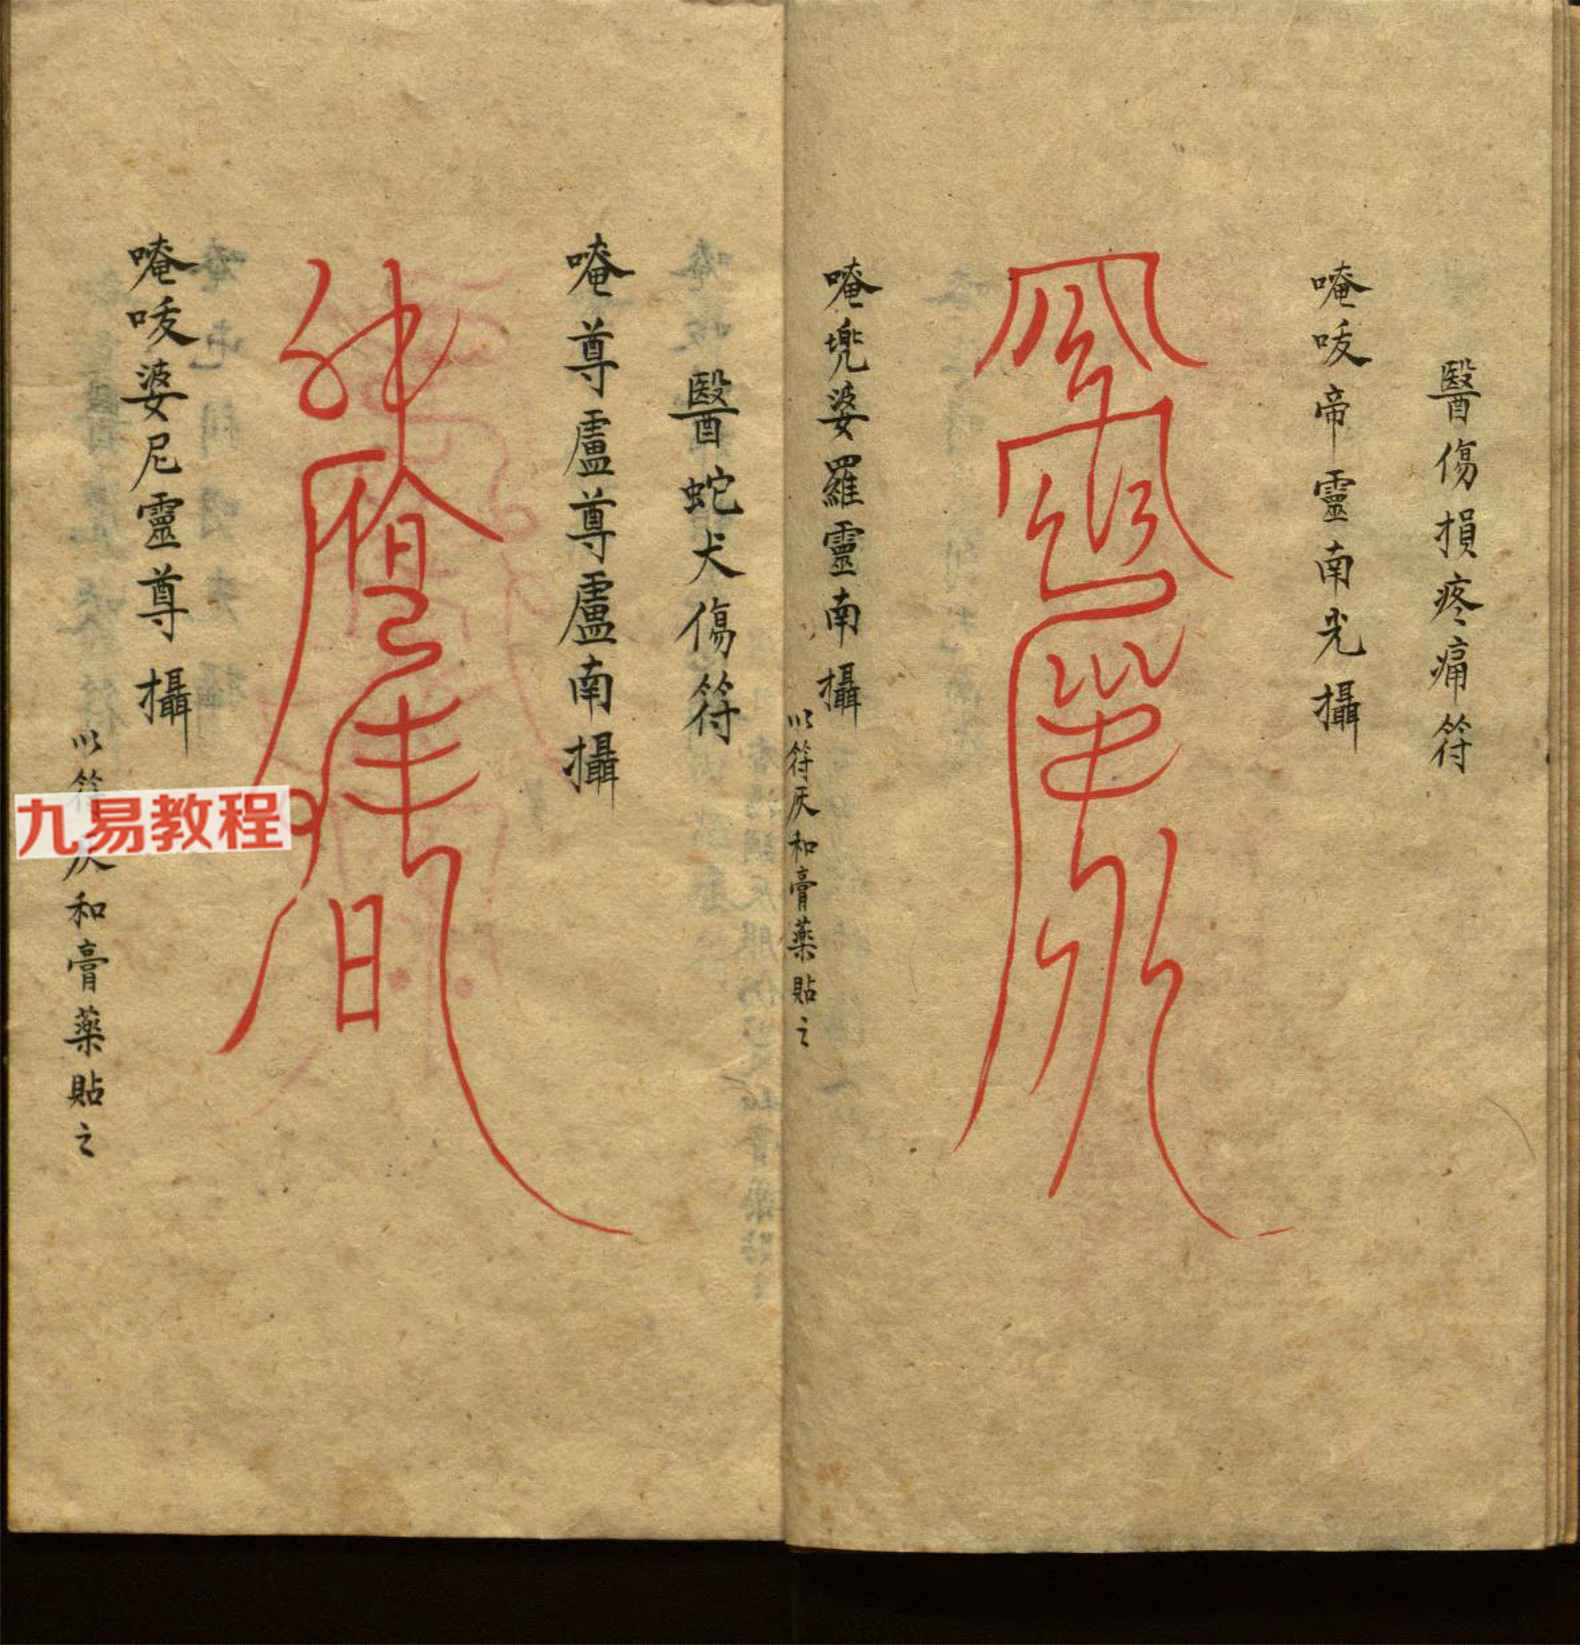 醫傷損疼痛符
唵㕹帝靈南光攝
唵兠婆羅靈南攝
以符灰和膏藥貼之
醫蛇犬傷符
唵尊盧尊盧南攝
唵㕹婆尼靈尊攝
以符灰和膏藥貼之
九易教程